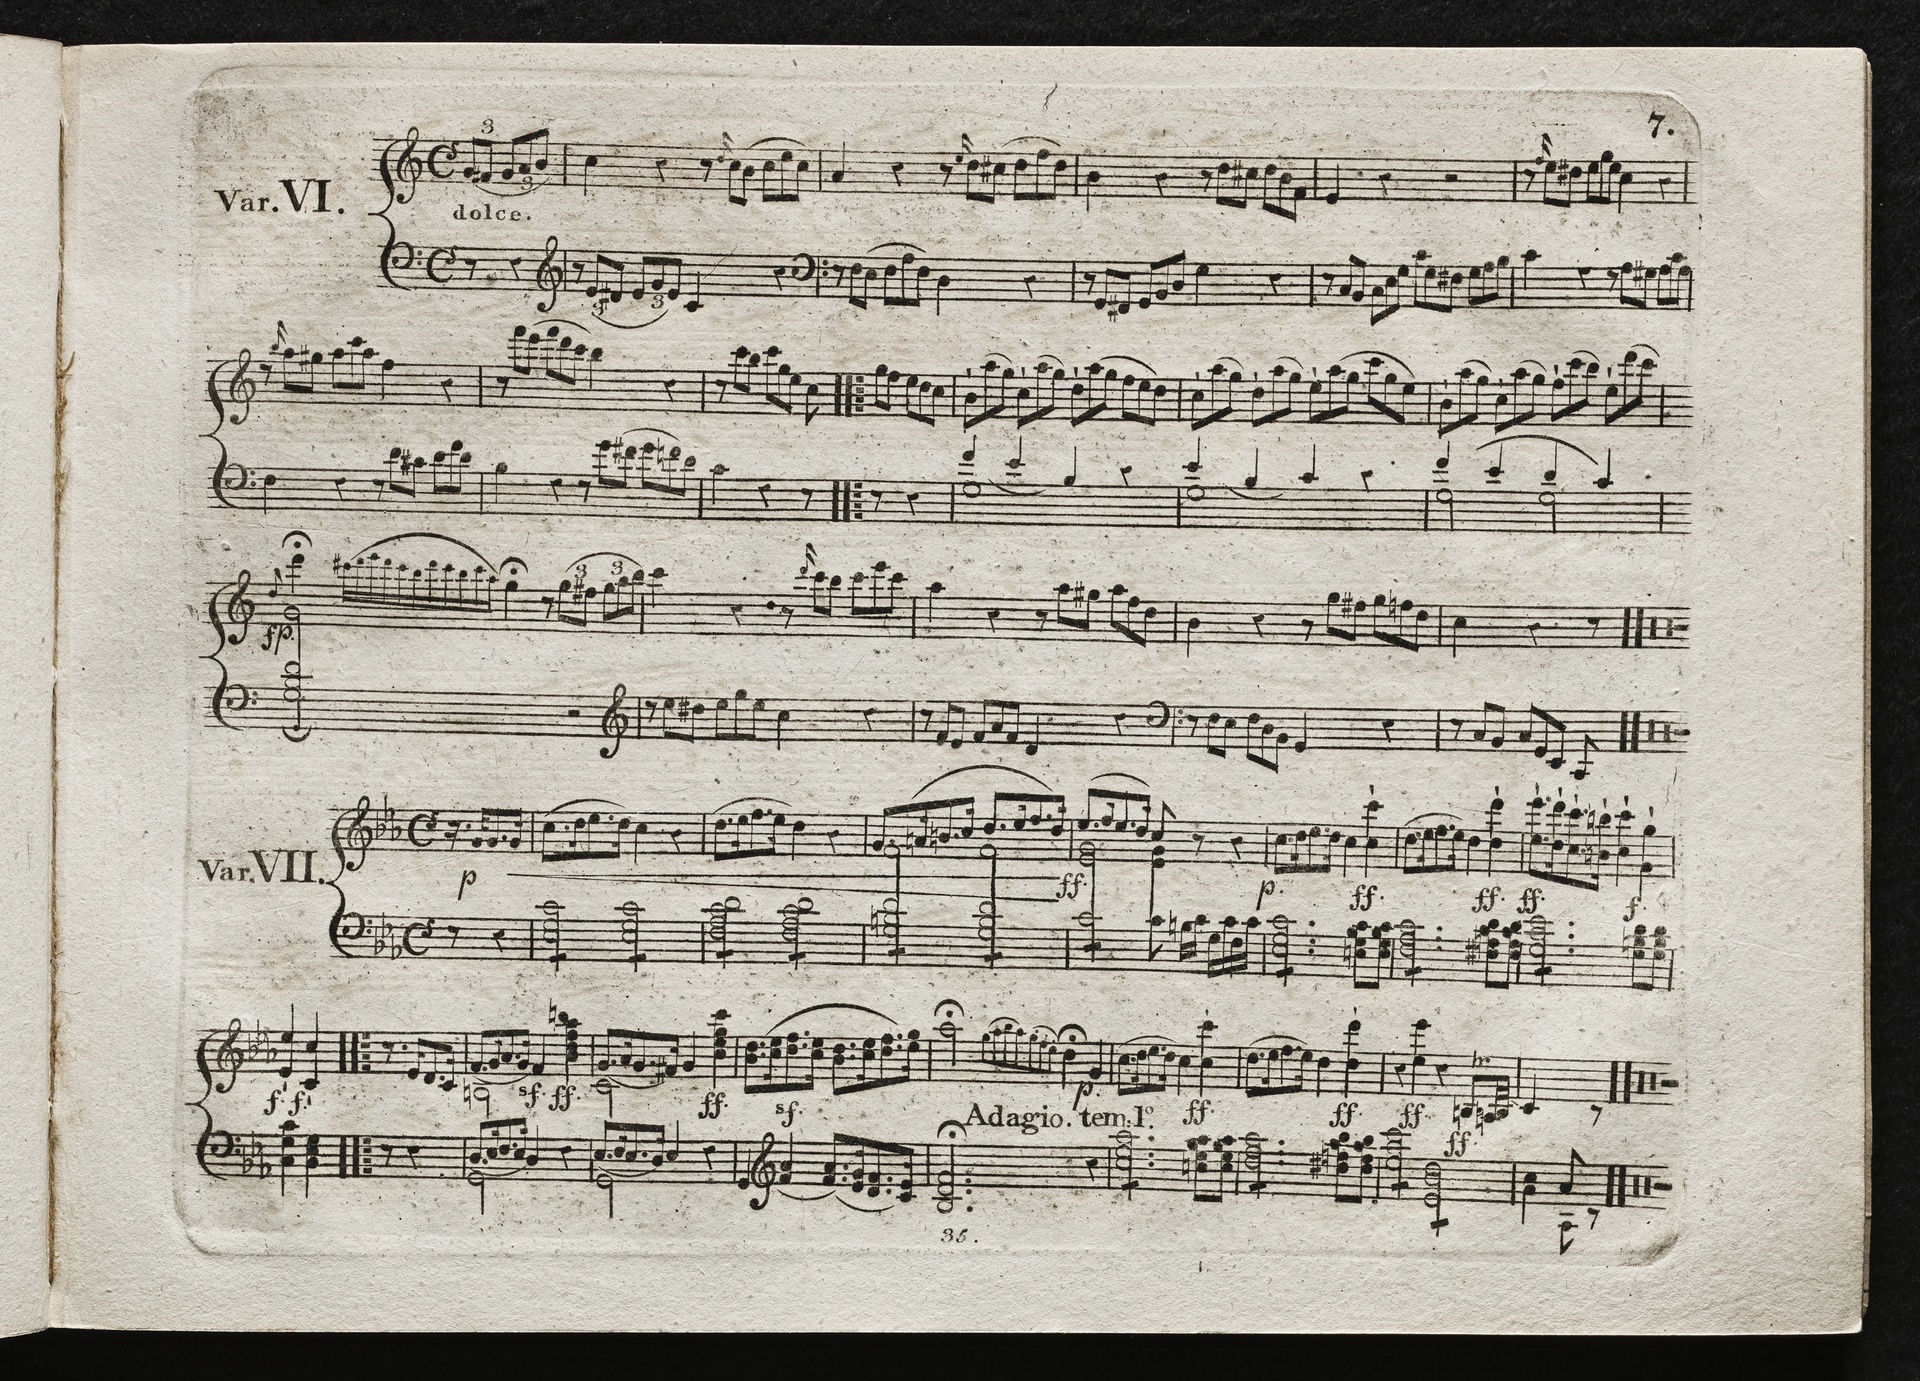 7.
3
3
Var. VI.
dolce.
3 3
3 3
fp.
Var. VII.
p ff. p. ff. ff. ff. f.
f. f. sf. ff. ff. sf. p. ff. ff. ff. tr.
Adagio. tem: 1º.
ff.
35.